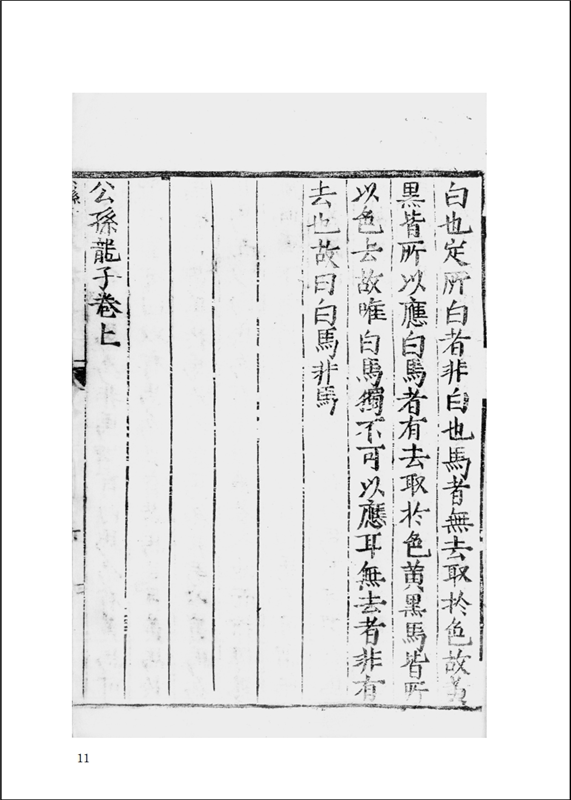 白也定所白者非白也馬者無去取於色故黃
黑皆所以應白馬者有去取於色黃黑馬皆所
以色去故唯白馬獨不可以應耳無去者非有
去也故曰白馬非馬
公孫龍子卷上
11